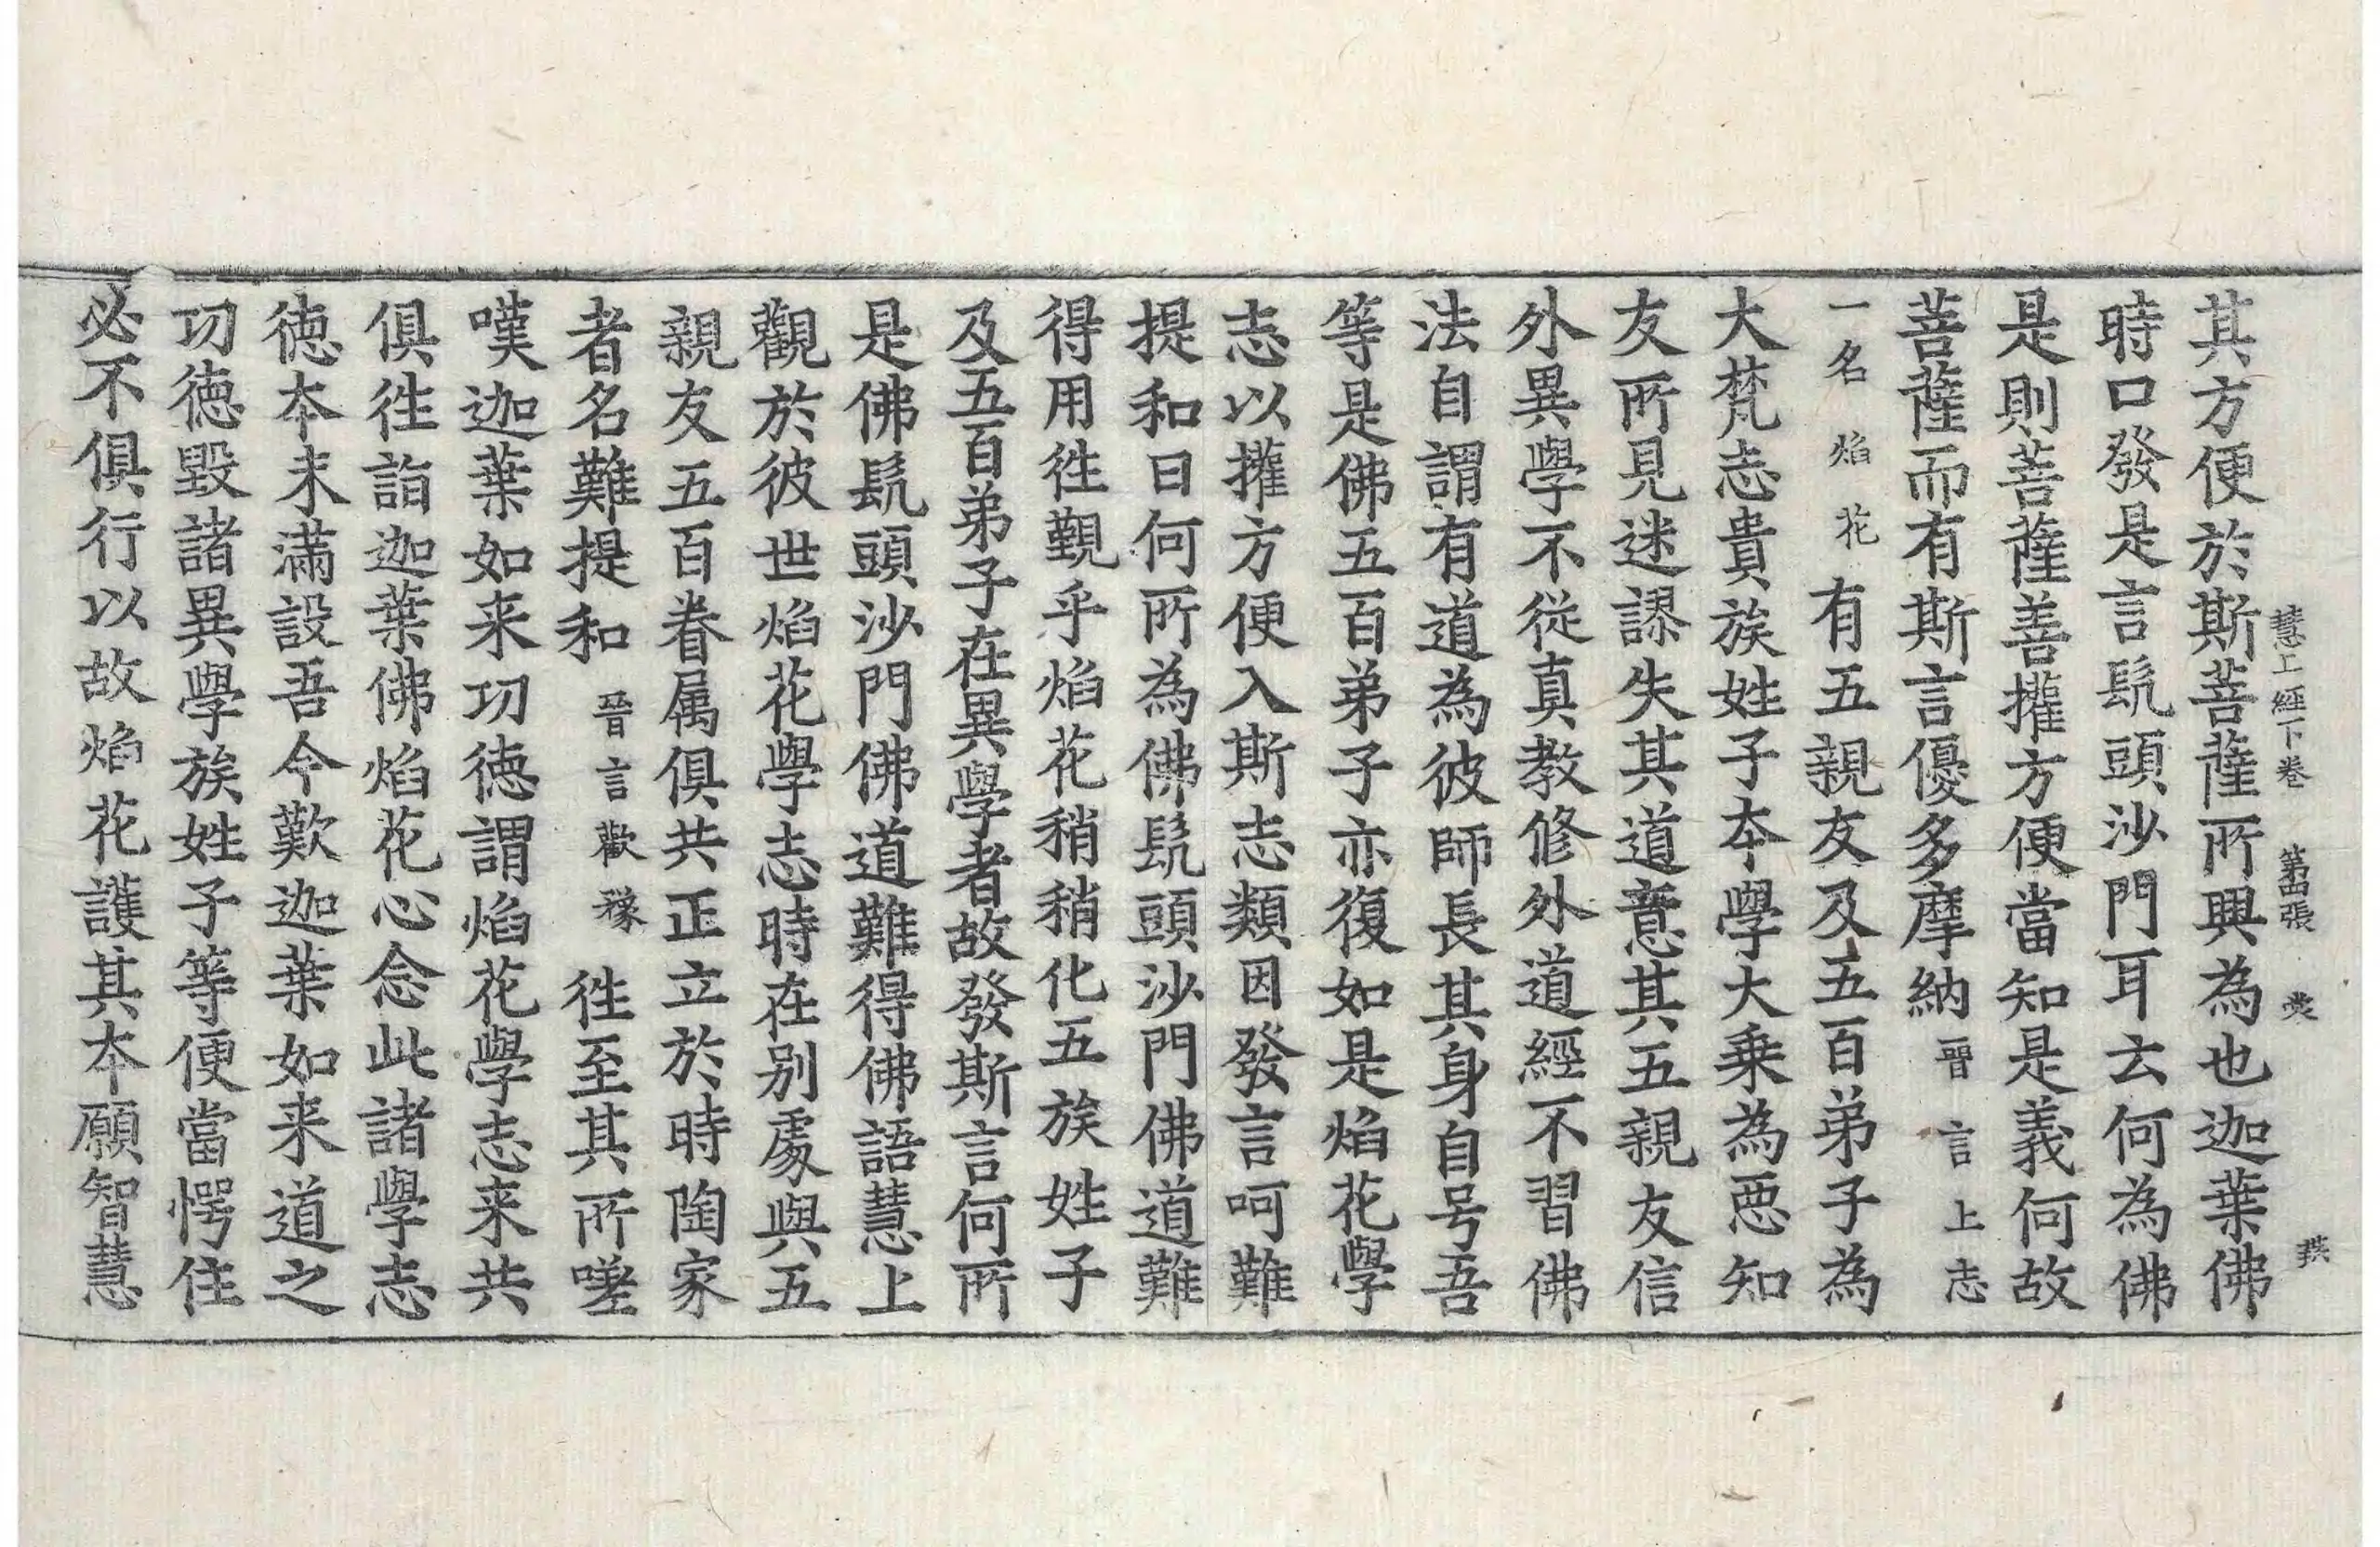 慧上經下卷 第四張
其方便於斯菩薩所興為也迦葉佛
時口發是言髡頭沙門耳云何為佛
是則菩薩善權方便當知是義何故
菩薩而有斯言優多摩納晉言上志
一名焰花有五親友及五百弟子為
大梵志貴族姓子本學大乗為惡知
友所見迷謬失其道意其五親友信
外異學不從真教修外道經不習佛
法自謂有道為彼師長其身自号吾
等是佛五百弟子亦復如是焰花學
志以權方便入斯志類因發言呵難
提和曰何所為佛髡頭沙門佛道難
得用往覲乎焰花稍稍化五族姓子
及五百弟子在異學者故發斯言何所
是佛髡頭沙門佛道難得佛語慧上
觀於彼世焰花學志時在別處與五
親友五百眷属俱共正立於時陶家
者名難提和晉言歡豫往至其所嗟
嘆迦葉如来功徳謂焰花學志来共
俱往詣迦葉佛焰花心念此諸學志
徳本未滿設吾今歎迦葉如来道之
功徳毀諸異學族姓子等便當愕住
必不俱行以故焰花護其本願智慧